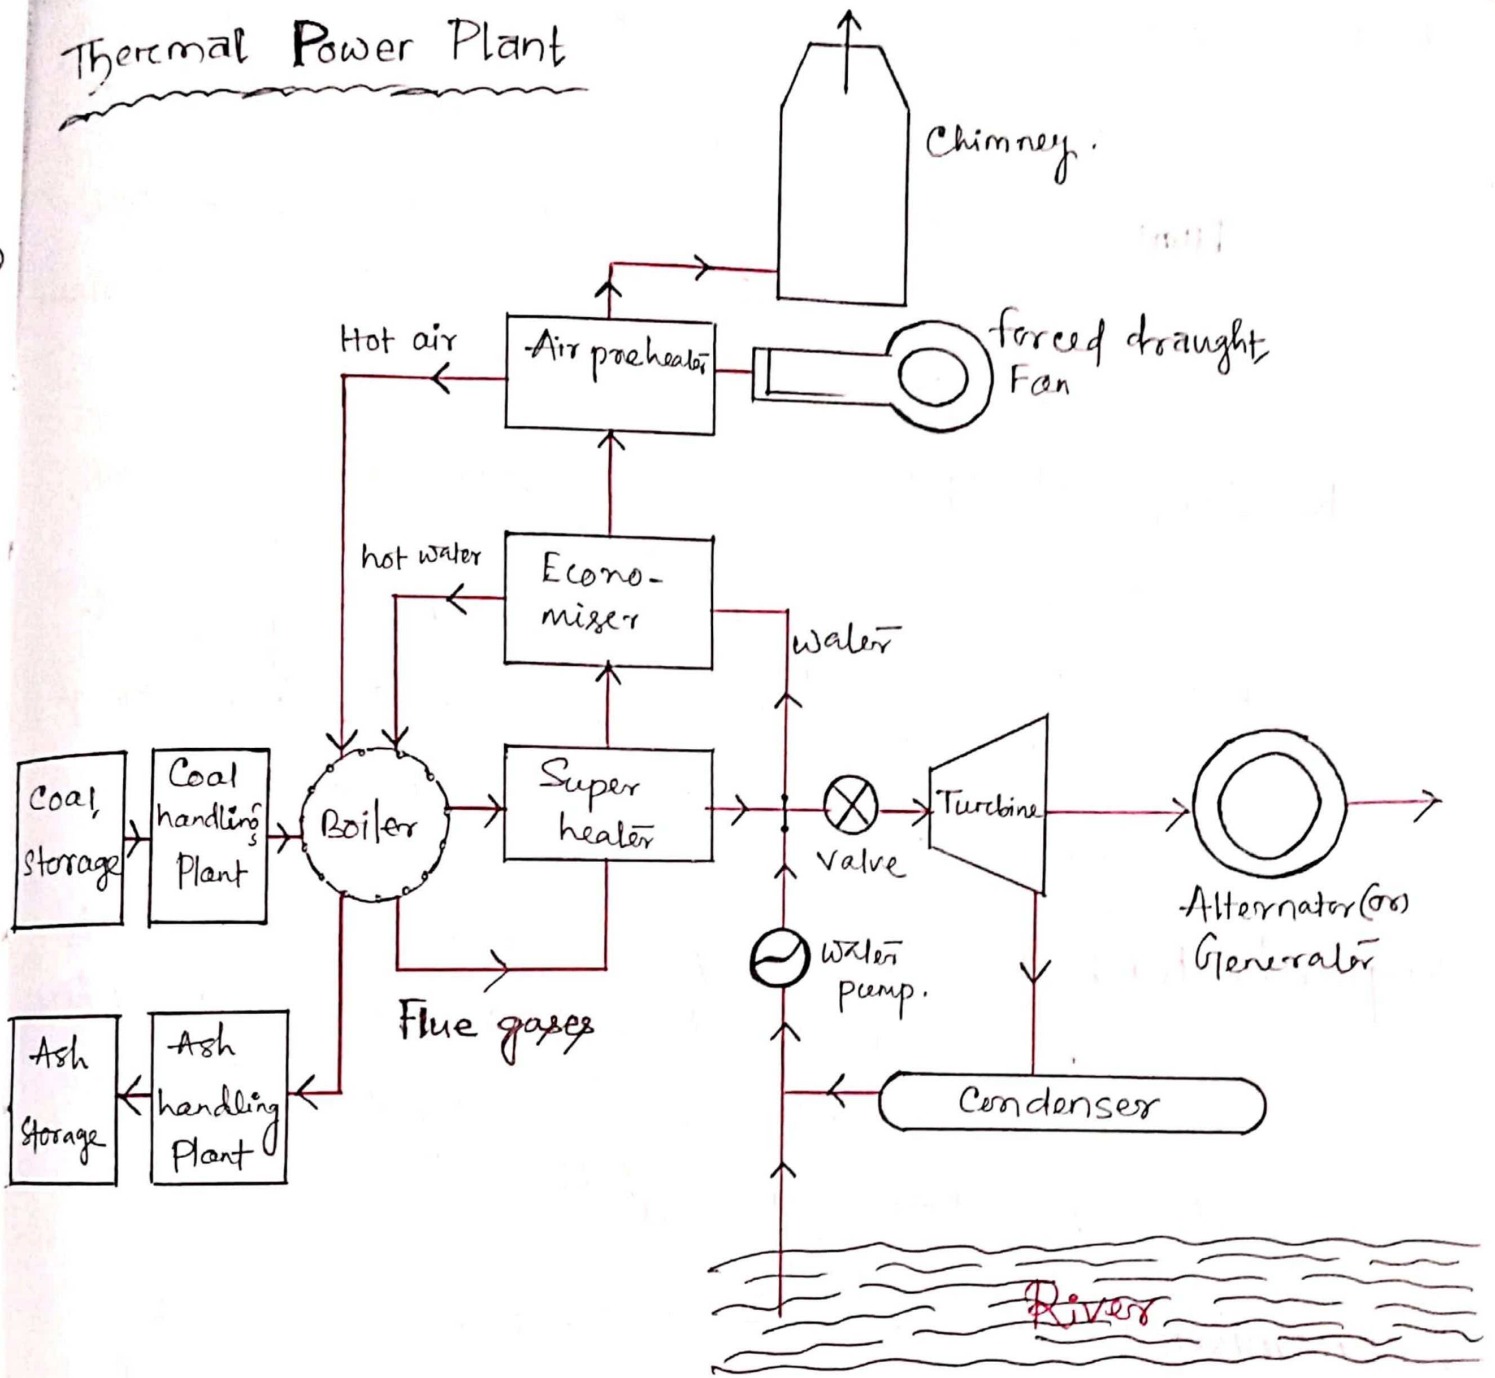 Thermal Power Plant
Chimney.
Hot air
Air preheater
forced draught
Fan
hot water
Econo-
miser
water
Coal
storage
Coal
handling
Plant
Boiler
Super
heater
valve
Turbine
Alternator (or)
Generator
water
pump.
Flue gases
Ash
storage
Ash
handling
Plant
Condenser
River